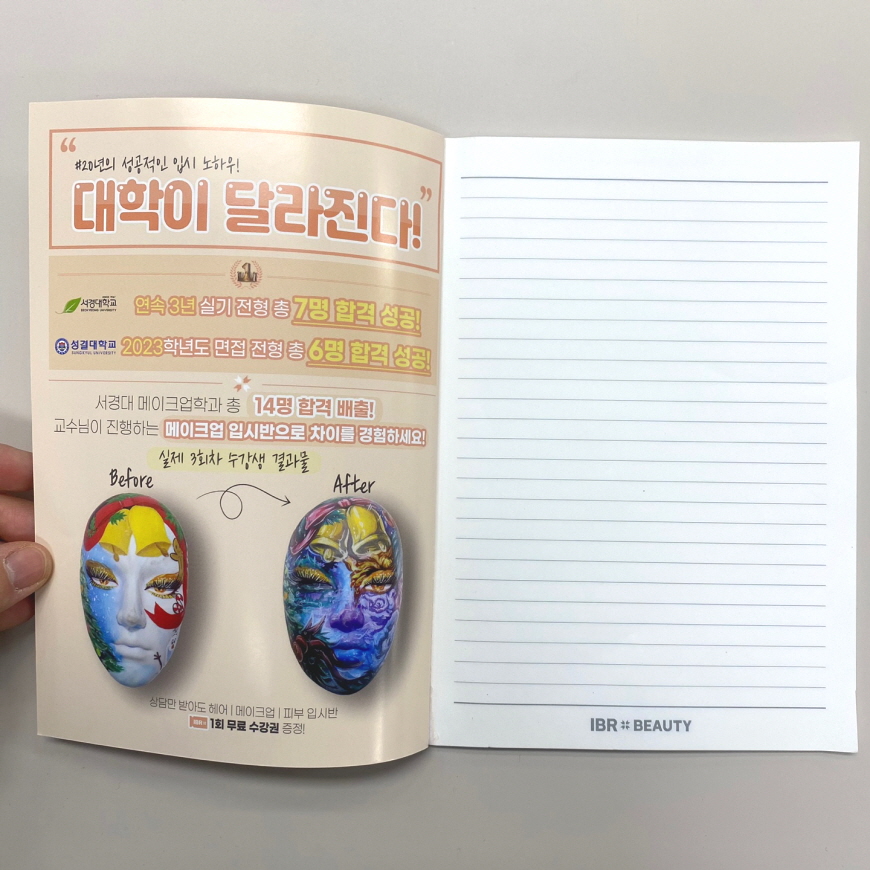 “
#20년의 성공적인 입시 노하우!
대학이 달라진다!
”
1
서경대학교
SEOKYEONG UNIVERSITY
연속 3년 실기 전형 총 7명 합격 성공!
성결대학교
SUNGKYUL UNIVERSITY
2023학년도 면접 전형 총 6명 합격 성공!
서경대 메이크업학과 총 14명 합격 배출!
교수님이 진행하는 메이크업 입시반으로 차이를 경험하세요!
실제 3회차 수강생 결과물
Before
After
상담만 받아도 헤어 | 메이크업 | 피부 입시반
IBR 1회 무료 수강권 증정!
IBR # BEAUTY